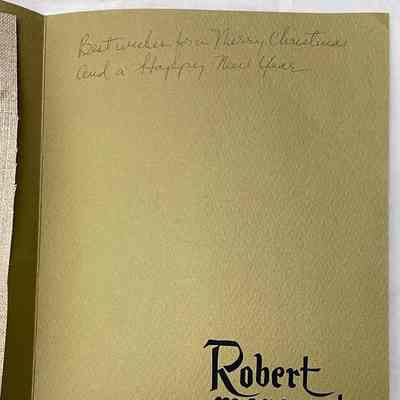 Best wishes for a Merry Christmas
and a Happy New Year
Robert